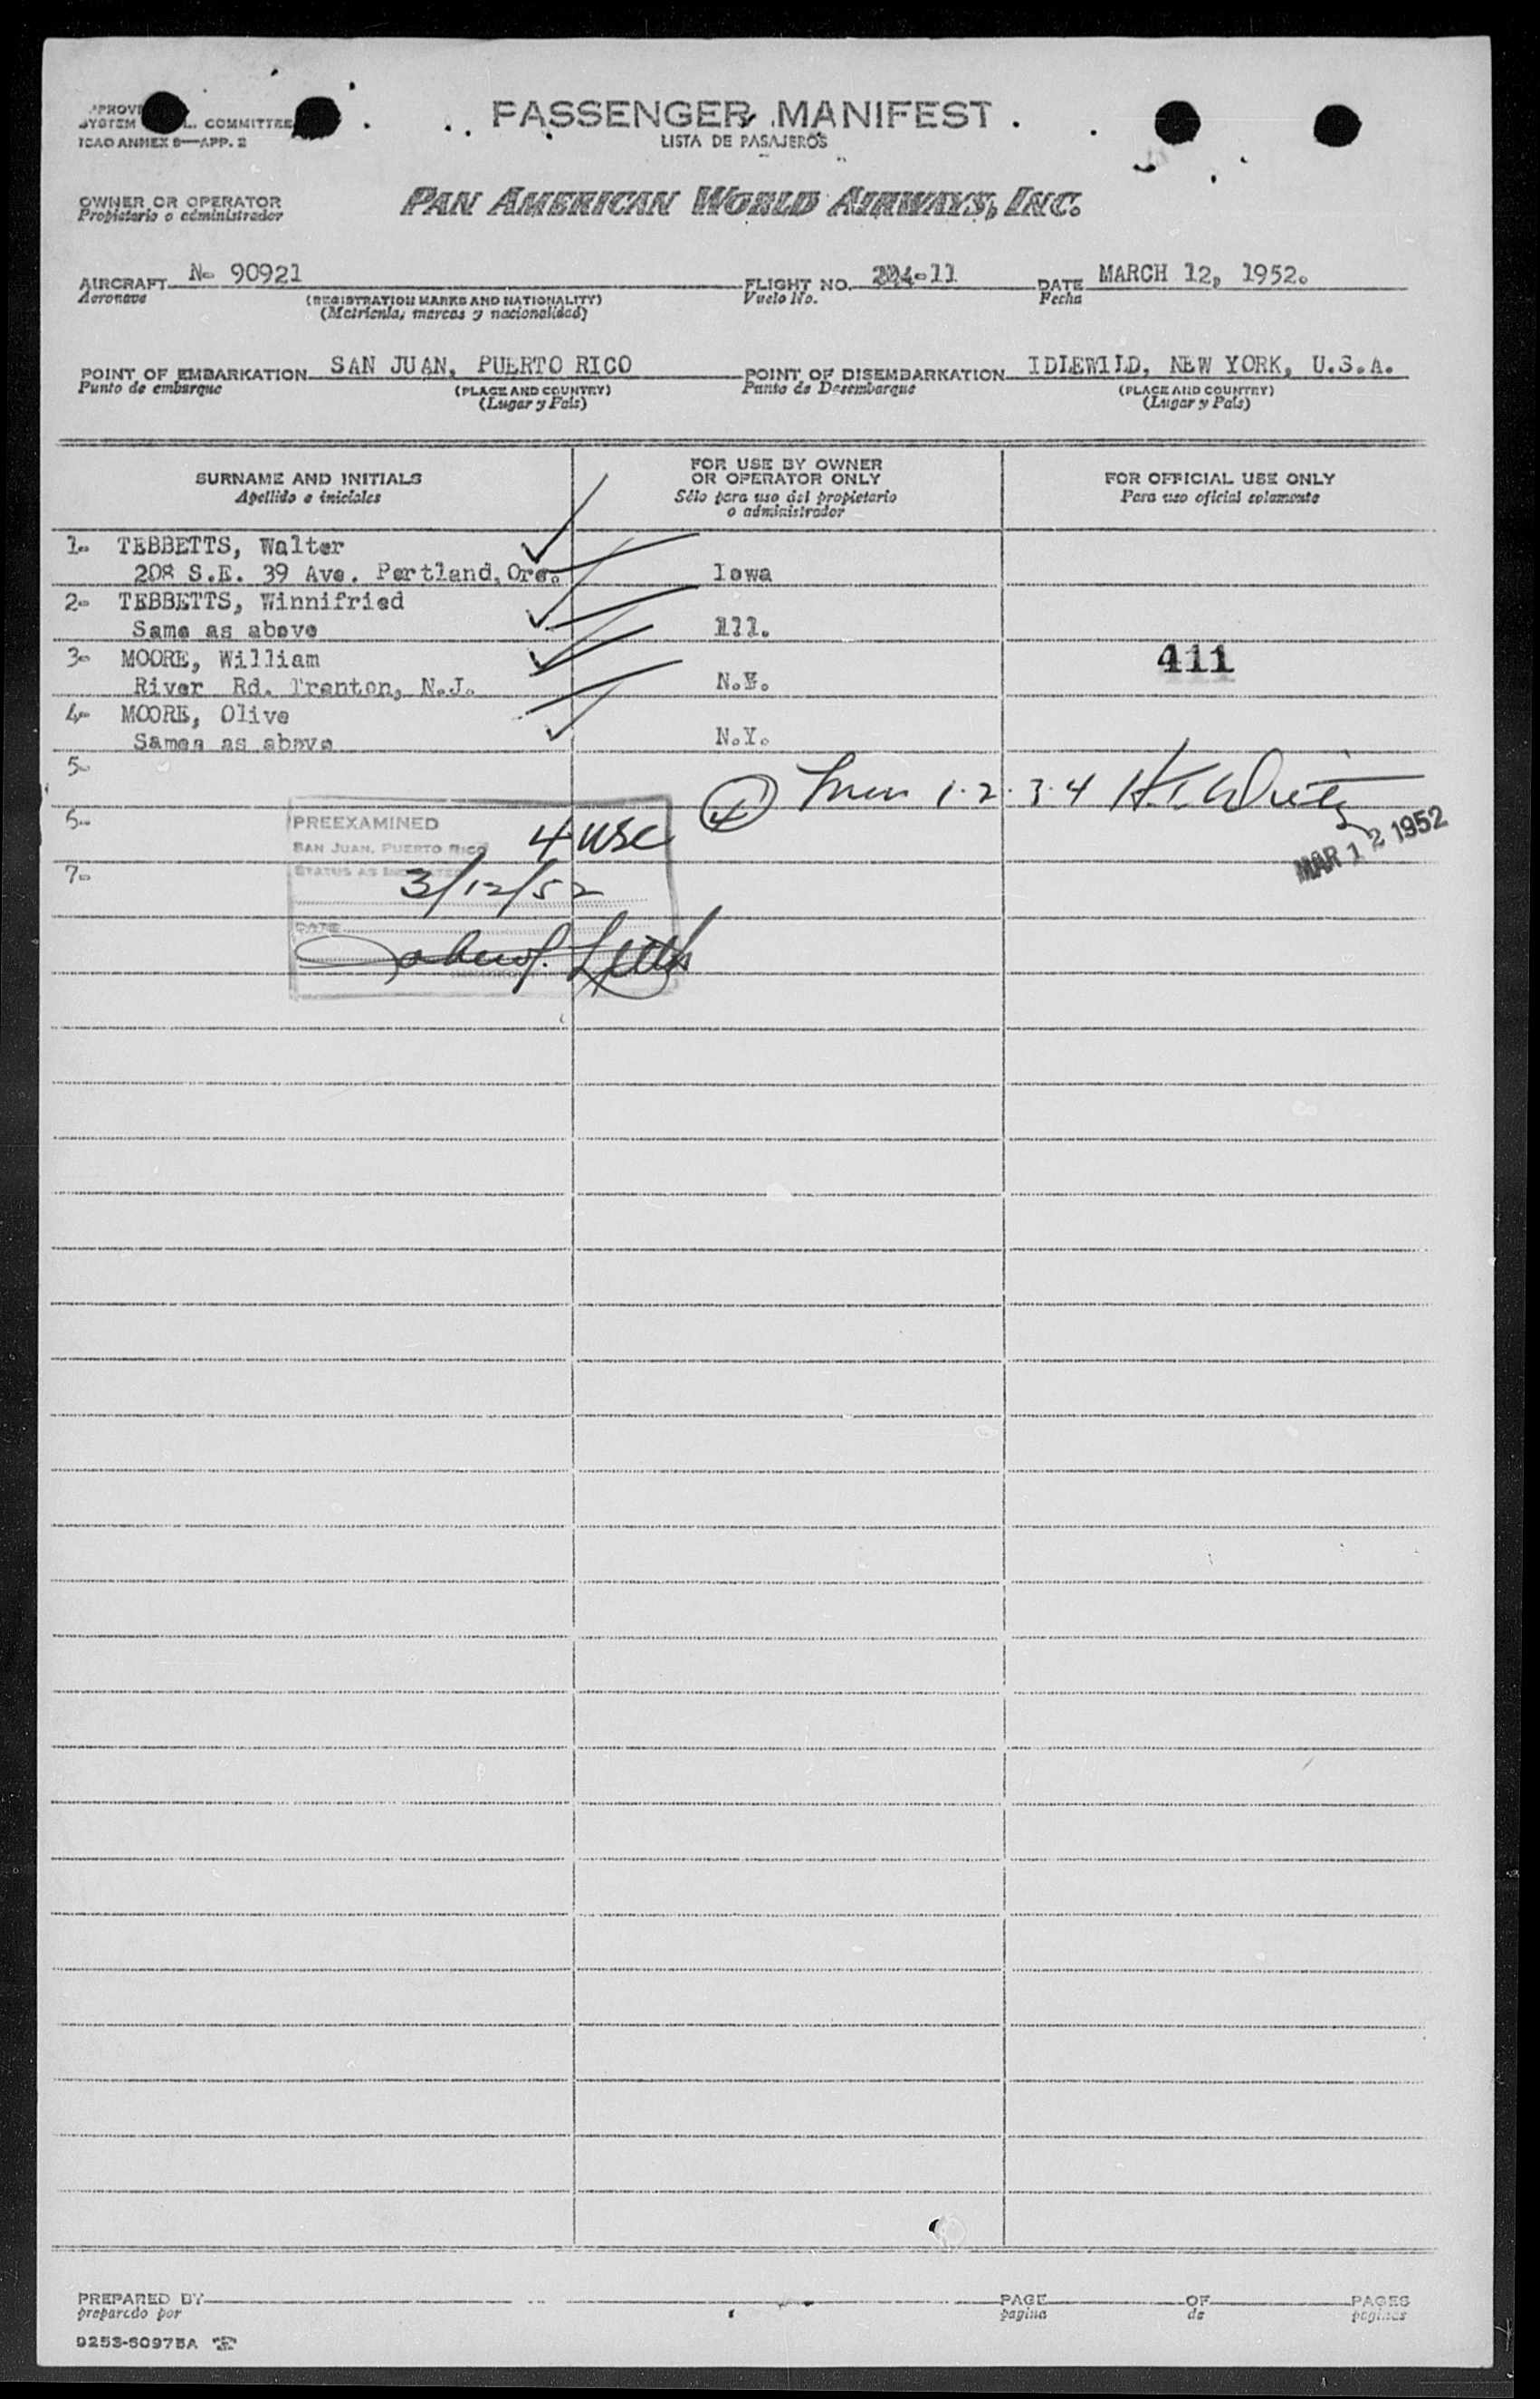 COMMITTEE
ICAO ANNEX 9—APP. 2
PASSENGER MANIFEST
LISTA DE PASAJEROS
OWNER OR OPERATOR
Propietario o administrador
PAN AMERICAN WORLD AIRWAYS, INC.
AIRCRAFT N- 90921 FLIGHT NO. -11 DATE MARCH 12, 1952.
Aeronave (REGISTRATION MARKS AND NATIONALITY) Vuelo No. Fecha
(Matricula, marcas y nacionalidad)
POINT OF EMBARKATION SAN JUAN, PUERTO RICO POINT OF DISEMBARKATION IDLEWILD, NEW YORK, U.S.A.
Punto de embarque (PLACE AND COUNTRY) Punto de Desembarque (PLACE AND COUNTRY)
(Lugar y Pais) (Lugar y Pais)
SURNAME AND INITIALS
Apellido e iniciales
FOR USE BY OWNER
OR OPERATOR ONLY
Sólo para uso del propietario
o administrador
FOR OFFICIAL USE ONLY
Para uso oficial solamente
1- TEBBETTS, Walter
208 S.E. 39 Ave. Portland, Ore. Iowa
2- TEBBETTS, Winnifried
Same as above Ill.
3- MOORE, William
River Rd. Trenton, N.J. N.Y.
411
4- MOORE, Olive
Sames as above N.Y.
5-
④ 1·2·3·4 H.T. White
6-
PREEXAMINED
SAN JUAN, PUERTO RICO 4 USC
MAR 12 1952
7-
STATUS AS INDICATED
3/12/52
DATE
PREPARED BY PAGE OF PAGES
preparado por pagina de paginas
9253-60975A